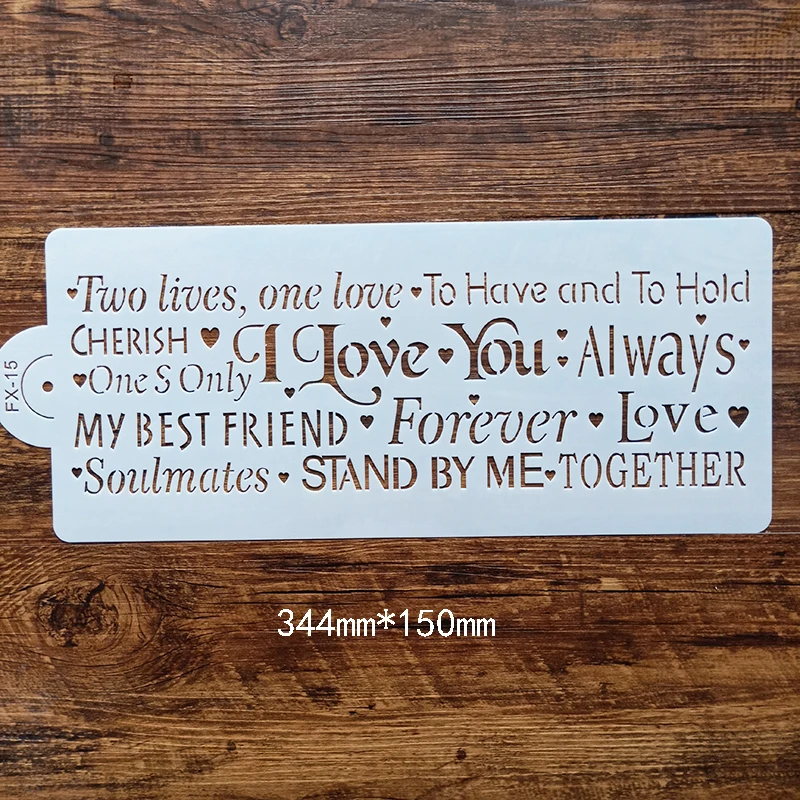 Two lives, one love To Have and To Hold
CHERISH I Love You Always
One S Only
MY BEST FRIEND Forever Love
Soulmates STAND BY ME TOGETHER
FX-15
344mm*150mm